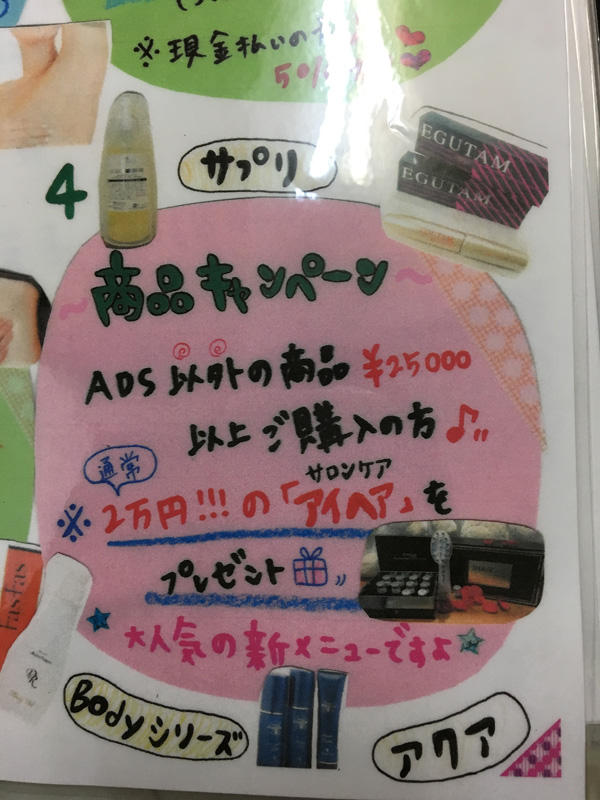 ※現金払いの
50
4
サプリ
EGUTAM
EGUTAM
〜商品キャンペーン〜
ADS以外の商品 ¥25000
以上ご購入の方♪
通常
サロンケア
※2万円!!!の「アイヘア」を
プレゼント
★大人気の新メニューですよ★
Bodyシリーズ
アクア